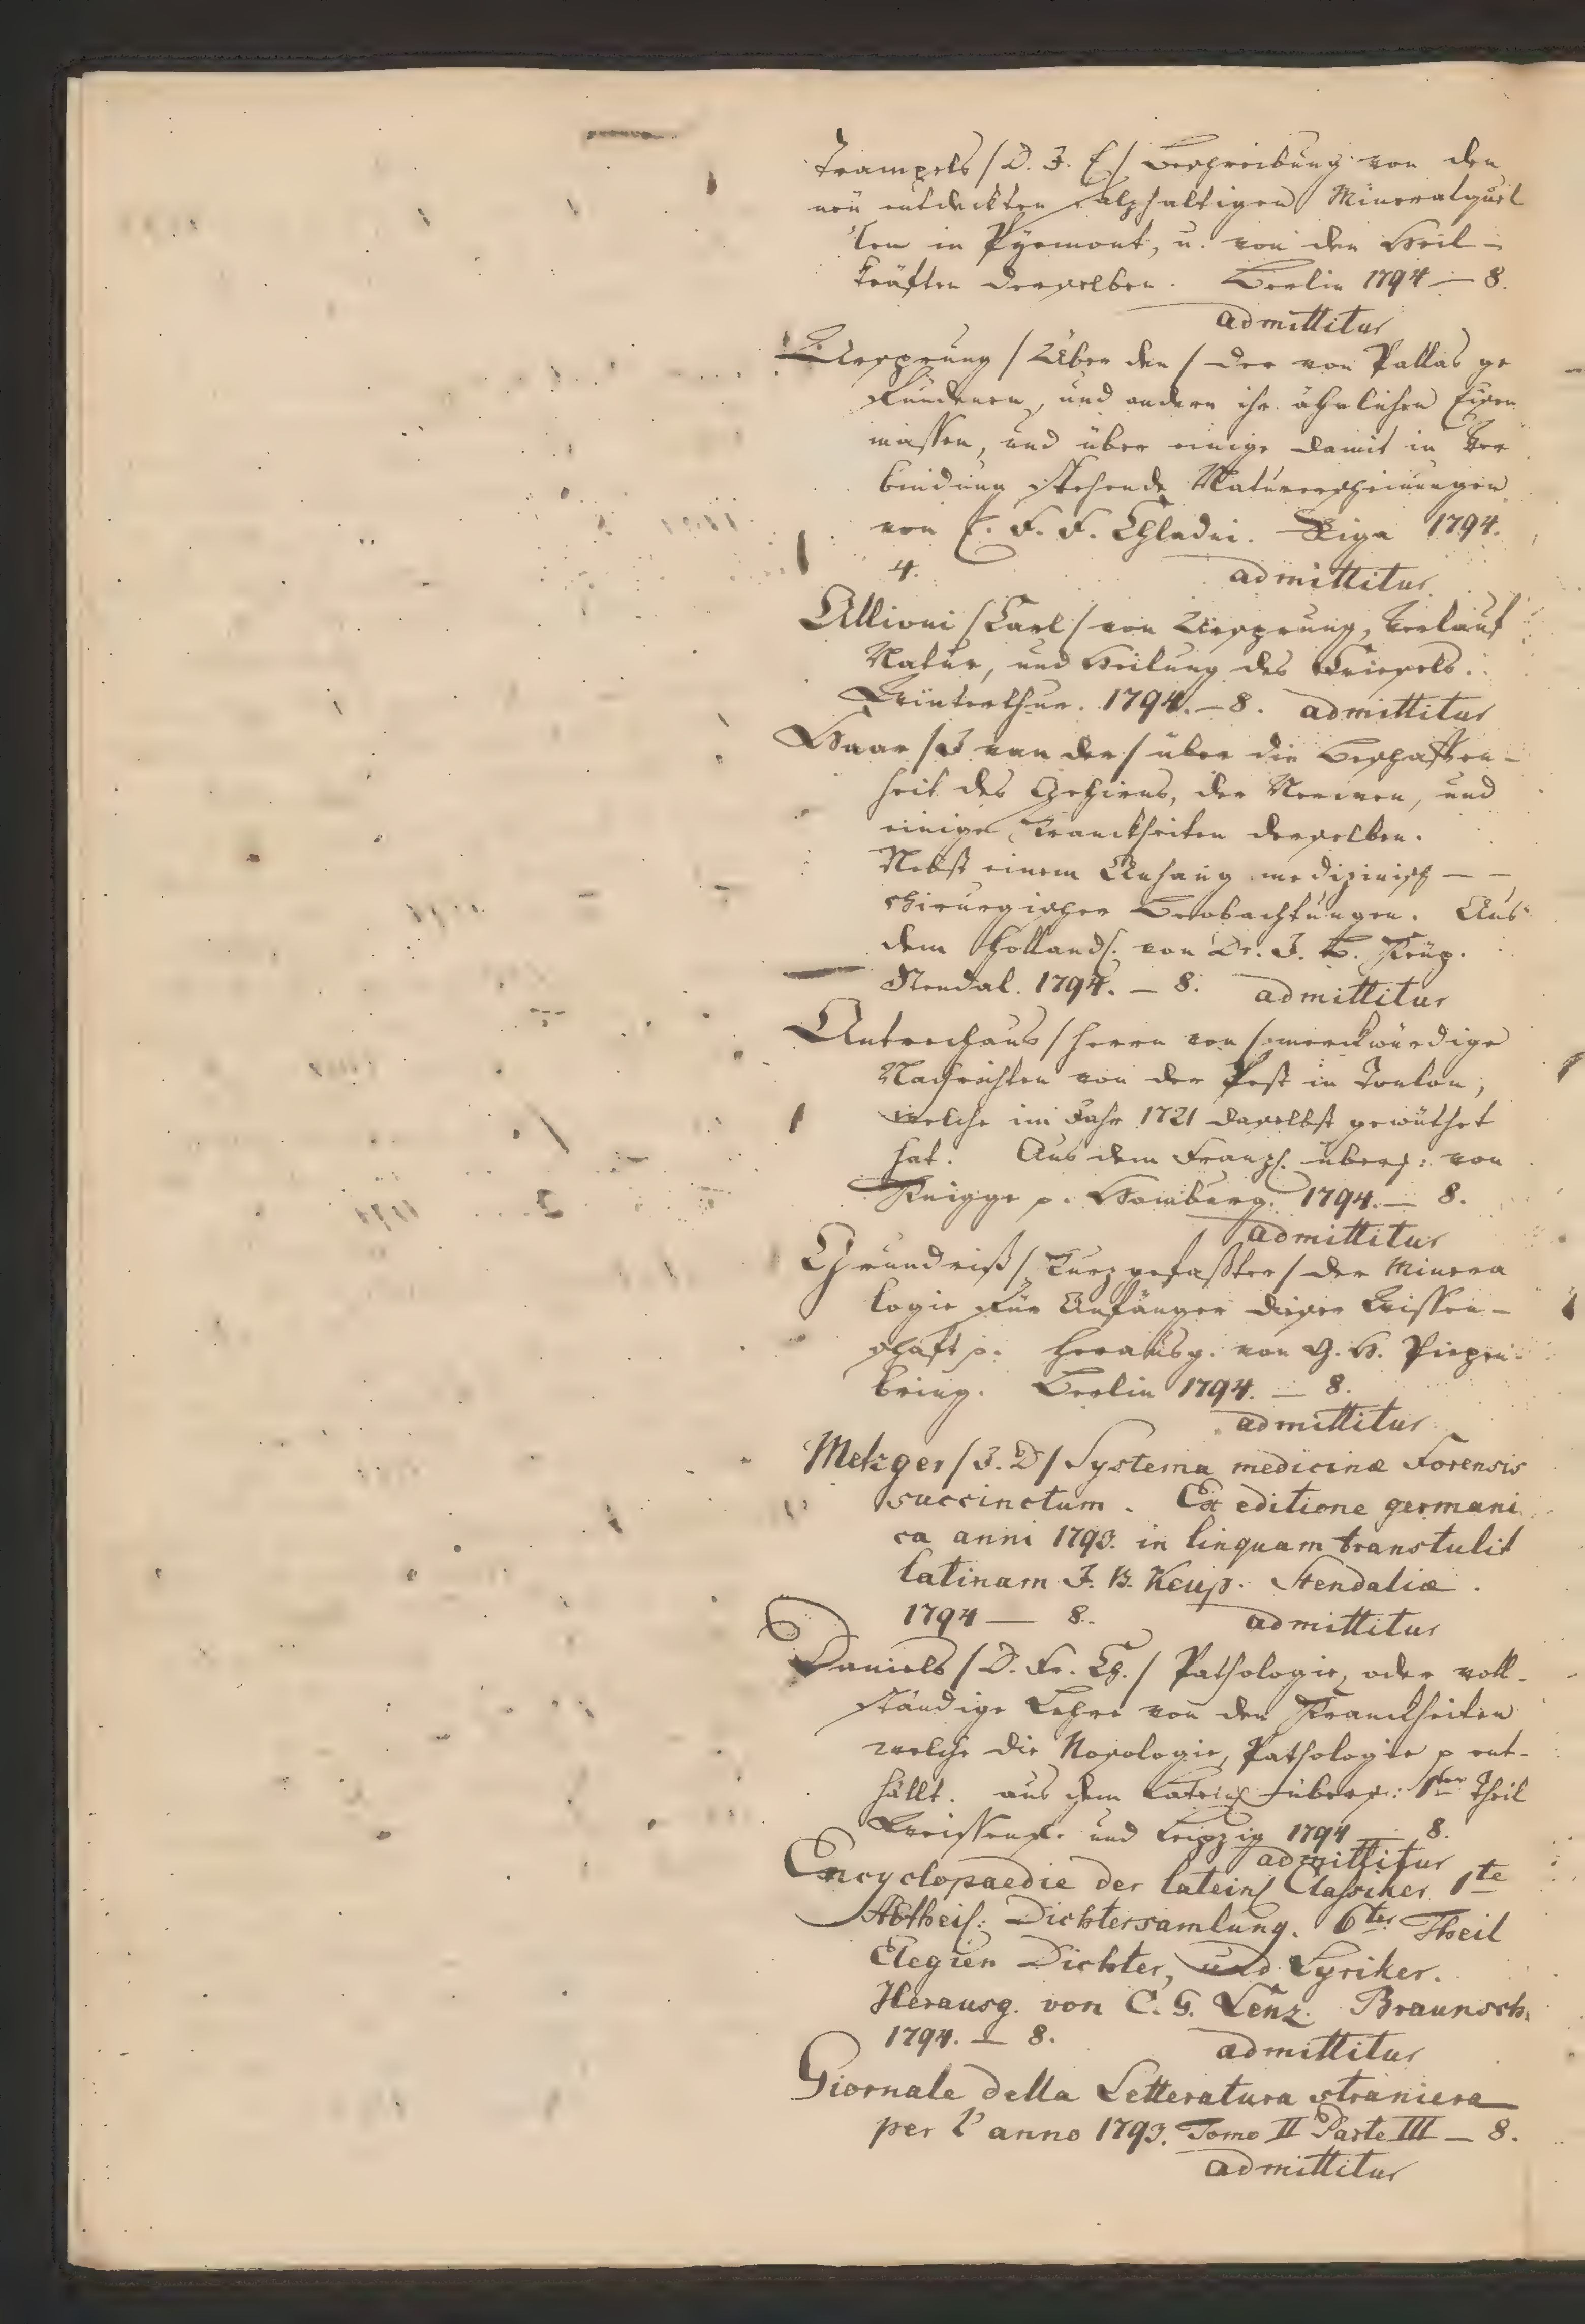 Trampels /D. J. E/ Beschreibung von den
neü entdeckten salzhaltigen Mineralquel
len in Pyrmont, u. von den Heil-
kräften derselben. Berlin 1794 — 8.
admittitur
Ursprung / Über den / der von Pallas ge
fundenen, und andern ihr ähnlichen Eisen
massen, und über einige damit in Ver
bindung stehende Naturerscheinungen
von E. F. F. Chladni. Riga 1794.
4. admittitur
Allioni /Carl/ von Ursprung, Verlauf
Natur, und Heilung des Friesels.
Winterthur. 1794. — 8. admittitur
Haar /J van der/ über die Beschaffen-
heit des Gehirns, der Nerven, und
einige Kranckheiten derselben.
Nebst einem Anhang medizinisch — —
chirurgischer Beobachtungen. Aus
dem Holländ. von Dr. J. B. Keüp.
Stendal. 1794. — 8. admittitur
Antrechaus /Herrn von/ merckwürdige
Nachrichten von der Pest in Toulon,
welche im Jahr 1721 daselbst gewüthet
hat. Aus dem Franz. übers: von
Knigge p. Hamburg. 1794. — 8.
admittitur
Grundriß / Kurzgefaßter / der Minera
logie für Anfänger dieser Wissen-
schaft p. Herausg. von G. H. Piepen-
bring. Berlin 1794. — 8.
admittitur
Metzger /J. D/ Systema medicinæ Forensis
succinctum. Ex editione germani
ca anni 1793. in linquam transtulit
latinam J. B. Keup. Stendaliæ.
1794 — 8. admittitur
Daniels /D. Fr. Ch./ Pathologie, oder voll-
ständige Lehre von den Kranckheiten
welche die Nosologie, Pathologie p ent-
hällt. aus dem Latein. übers: 1ter Theil
Weissenf. und Leipzig 1794 — 8.
admittitur
Encyclopaedie der latein Classiker 1te
Abtheil: Dichtersamlung. 6ter Theil
Elegien Dichter, und Lyriker.
Herausg. von C. G. Lenz. Braunsch.
1794. — 8. admittitur
Giornale della Letteratura straniera
per l'anno 1793. Tomo II Parte III — 8.
admittitur